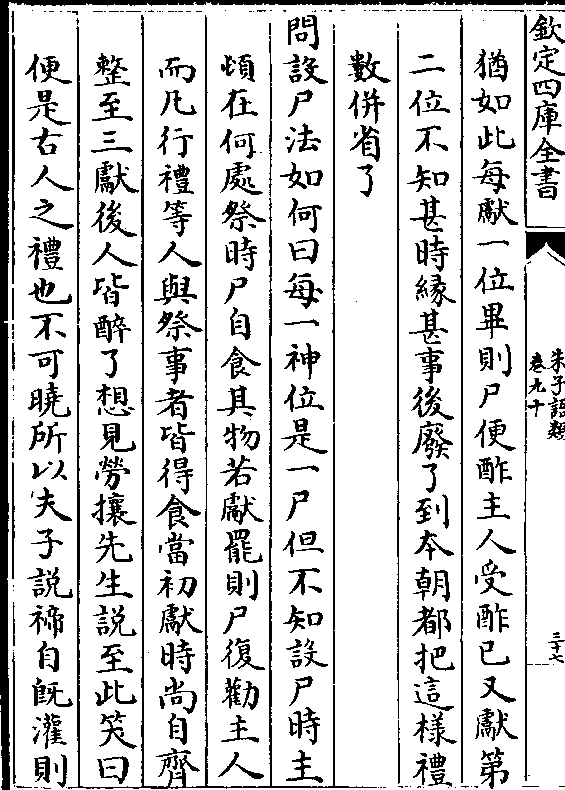 欽定四庫全書
朱子語類
卷九十
三十七
猶如此每獻一位畢則尸便酢主人受酢已又獻第
二位不知甚時緣甚事後廢了到本朝都把這樣禮
數併省了
問設尸法如何曰每一神位是一尸但不知設尸時主
頓在何處祭時尸自食其物若獻罷則尸復勸主人
而凡行禮等人與祭事者皆得食當初獻時尚自齊
整至三獻後人皆醉了想見勞攘先生說至此笑曰
便是古人之禮也不可曉所以夫子說禘自既灌則